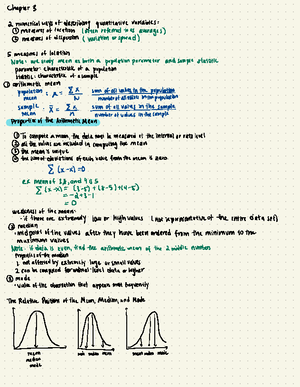 Chapter 3
2 numerical ways of describing quantitative variables:
① measures of location (often referred to as averages)
② measures of dispersion (variation or spread)
5 measures of location
Note: we study mean as both a population parameter and sample statistic
parameter: characteristic of a population
statistic: characteristic of a sample
① arithmetic mean
population mean : μ = Σx / N sum of all values in the population / number of all values in the population
sample mean : x̄ = Σx / n sum of all values in the sample / number of values in the sample
Properties of the Arithmetic Mean
① To compute a mean, the data must be measured at the interval or ratio level
② all the values are included in computing the mean
③ the mean is unique
④ the sum of deviations of each value from the mean is zero
Σ(x-x̄)=0
ex mean of 3,8, and 4 is 5
Σ(x-x̄) = (3-5)+(8-5)+(4-5)
= -2+3-1
= 0
weakness of the mean:
- if there are extremely low or high values (not representative of the entire data set)
② median
- midpoint of the values after they have been ordered from the minimum to the
maximum values
Note: if data is even, find the arithmetic mean of the 2 middle numbers
Properties of the median
1 not affected by extremely large or small values
2 can be computed for ordinal-level data or higher
③ mode
- value of the observation that appears most frequently
The Relative Positions of the Mean, Median, and Mode
mean
median
mode
mode median mean
mean median mode